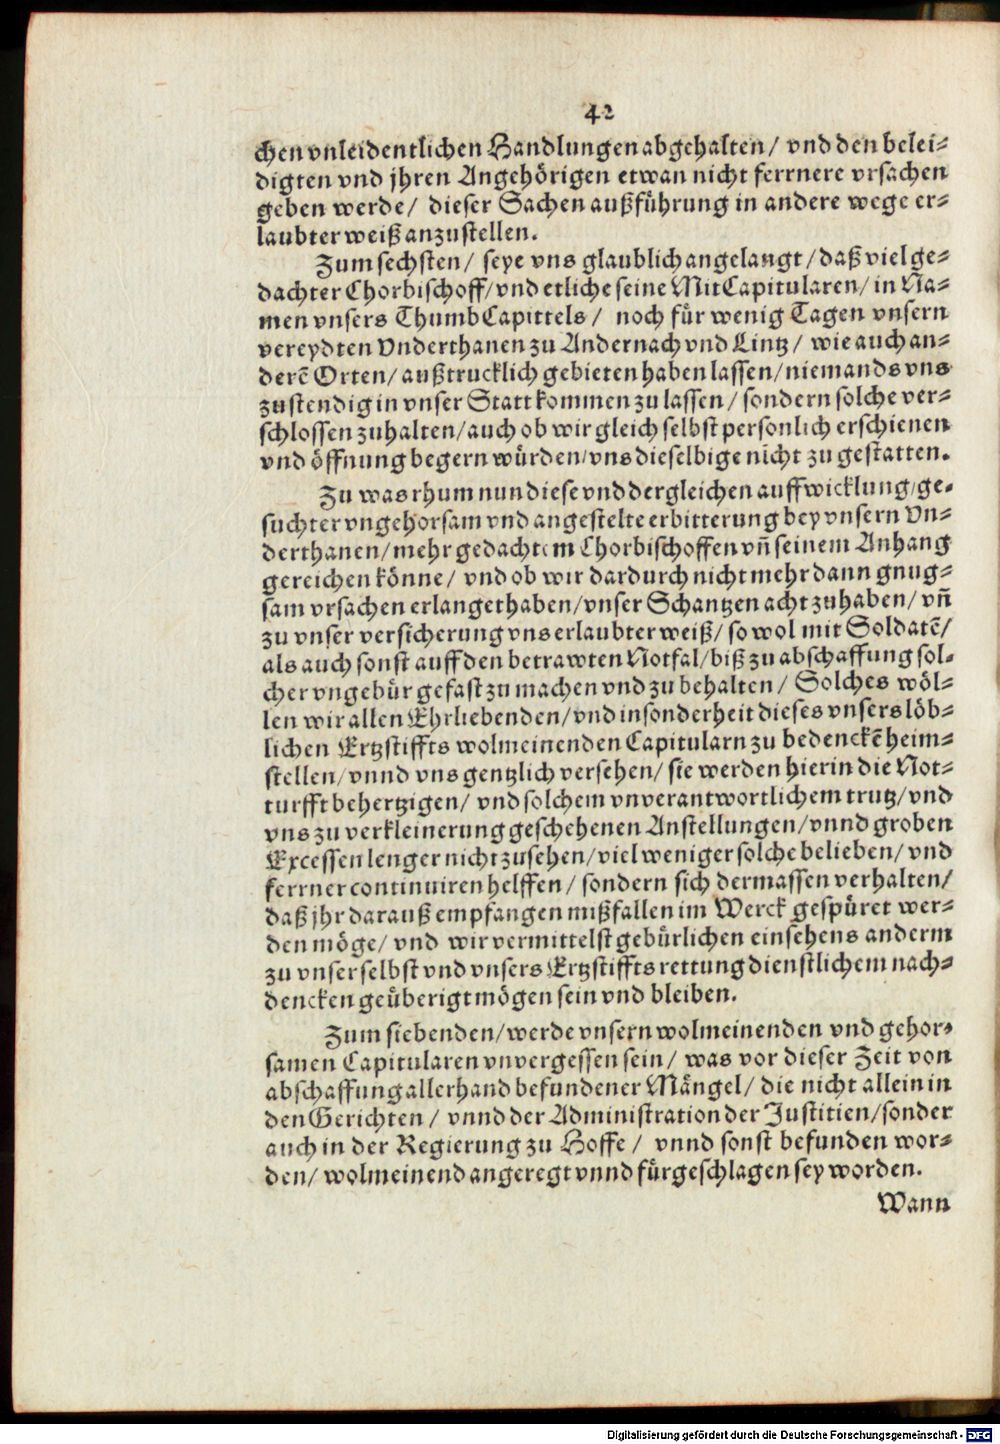 42
chen vnleidentlichen Handlungen abgehalten/ vnd den belei-
digten vnd jhren Angehörigen etwan nicht ferrnere vrsachen
geben werde/ dieser Sachen außführung in andere wege er-
laubter weiß anzustellen.
Zum sechsten/ seye vns glaublich angelangt/ daß viel ge-
dachter Chorbischoff/ vnd etliche seine MitCapitularen/ in Na-
men vnsers ThumbCapittels/ noch für wenig Tagen vnsern
vereydten Vnderthanen zu Andernach vnd Lintz/ wie auch an-
derē Orten/ außtrucklich gebieten haben lassen/ niemands vns
zustendig in vnser Statt kommen zu lassen/ sondern solche ver-
schlossen zuhalten/ auch ob wir gleich selbst personlich erschienen
vnd öffnung begern würden/ vns dieselbige nicht zu gestatten.
Zu was rhum nun diese vnd dergleichen auffwicklung/ ge-
suchter vngehorsam vnd angestelte erbitterung bey vnsern Vn-
derthanen/ mehrgedachtem Chorbischoffen vñ seinem Anhang
gereichen könne/ vnd ob wir dardurch nicht mehr dann gnug-
sam vrsachen erlanget haben/ vnser Schantzen acht zuhaben/ vñ
zu vnser versicherung vns erlaubter weiß/ so wol mit Soldatē/
als auch sonst auff den betrawten Notfal/ biß zu abschaffung sol-
cher vngebür gefast zu machen vnd zu behalten/ Solches wöl-
len wir allen Ehrliebenden/ vnd insonderheit dieses vnsers löb-
lichen Ertzstiffts wolmeinenden Capitularn zu bedenckē heim-
stellen/ vnnd vns gentzlich versehen/ sie werden hierin die Not-
turfft behertzigen/ vnd solchem vnverantwortlichem trutz/ vnd
vns zu verkleinerung geschehenen Anstellungen/ vnnd groben
Excessen lenger nicht zusehen/ viel weniger solche belieben/ vnd
ferrner continuiren helffen/ sondern sich dermassen verhalten/
daß jhr darauß empfangen mißfallen im Werck gespüret wer-
den möge/ vnd wir vermittelst gebürlichen einsehens anderm
zu vnser selbst vnd vnsers Ertzstiffts rettung dienstlichem nach-
dencken geüberigt mögen sein vnd bleiben.
Zum siebenden/ werde vnsern wolmeinenden vnd gehor-
samen Capitularen vnvergessen sein/ was vor dieser Zeit von
abschaffung allerhand befundener Mängel/ die nicht allein in
den Gerichten/ vnnd der Administration der Justitien/ sonder
auch in der Regierung zu Hoffe/ vnnd sonst befunden wor-
den/ wolmeinend angeregt vnnd fürgeschlagen sey worden.
Wann
Digitalisierung gefördert durch die Deutsche Forschungsgemeinschaft - DFG